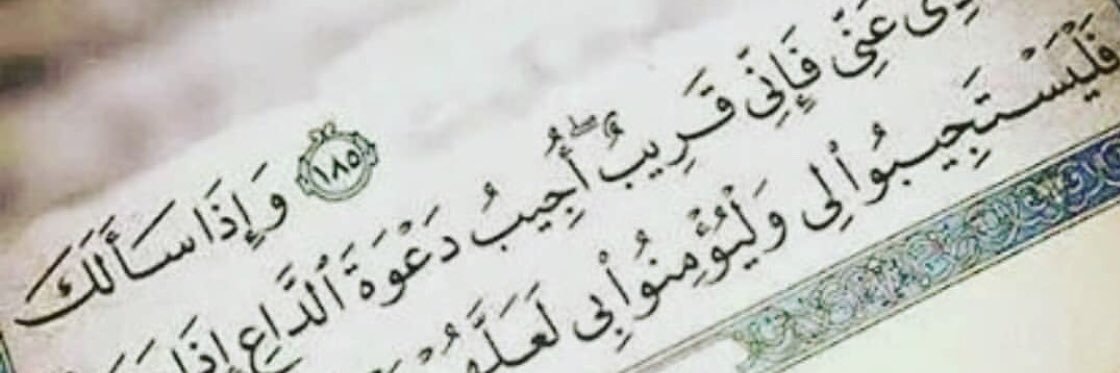 ١٨٥ وَإِذَا سَأَلَكَ
عَنِّى فَإِنِّى قَرِيبٌ ۖ أُجِيبُ دَعْوَةَ ٱلدَّاعِ إِذَا
فَلْيَسْتَجِيبُوا۟ لِى وَلْيُؤْمِنُوا۟ بِى لَعَلَّهُمْ